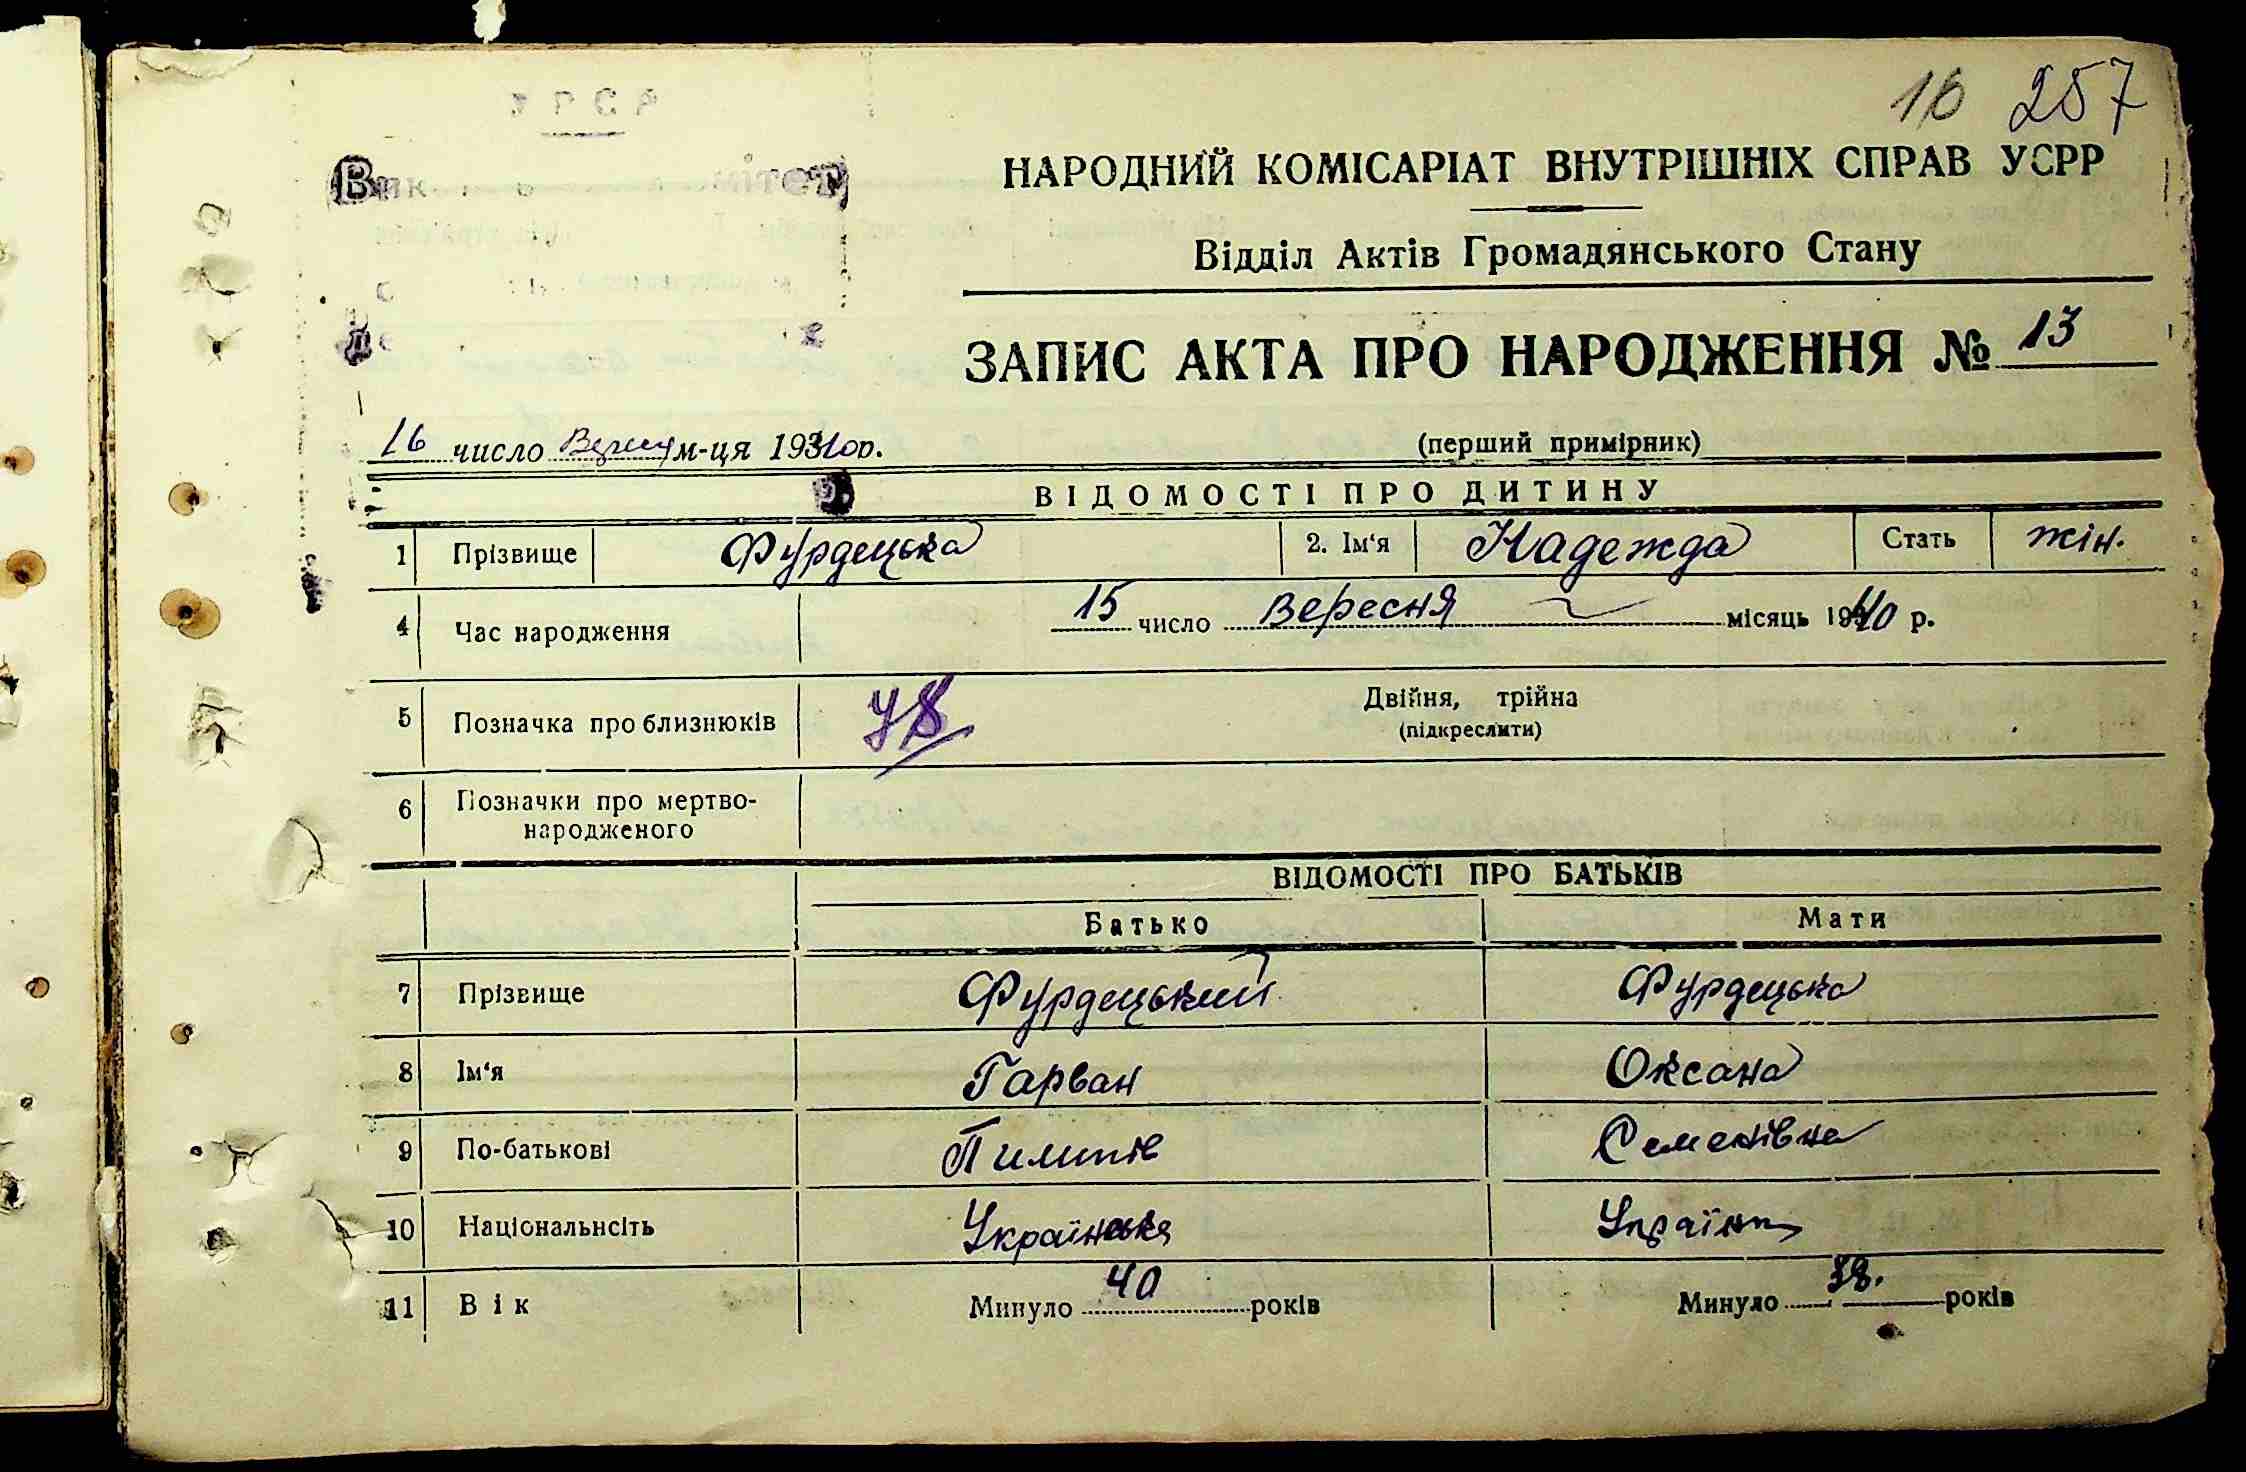 16 257
УРСР
НАРОДНИЙ КОМІСАРІАТ ВНУТРІШНІХ СПРАВ УСРР
Відділ Актів Громадянського Стану
ЗАПИС АКТА ПРО НАРОДЖЕННЯ № 13
16 число м-ця 1940 р.
(перший примірник)
ВІДОМОСТІ ПРО ДИТИНУ
1 Прізвище Фурдецька 2. Ім'я Надежда Стать жін.
4 Час народження 15 число Вересня місяць 1940 р.
5 Позначка про близнюків 78 Двійня, трійна
(підкреслити)
6 Позначки про мертво-
народженого
ВІДОМОСТІ ПРО БАТЬКІВ
Батько Мати
7 Прізвище Фурдецький Фурдецька
8 Ім'я Гарван Оксана
9 По-батькові Семенівна
10 Національнсіть Українська
11 Вік Минуло 40 років Минуло 38. років